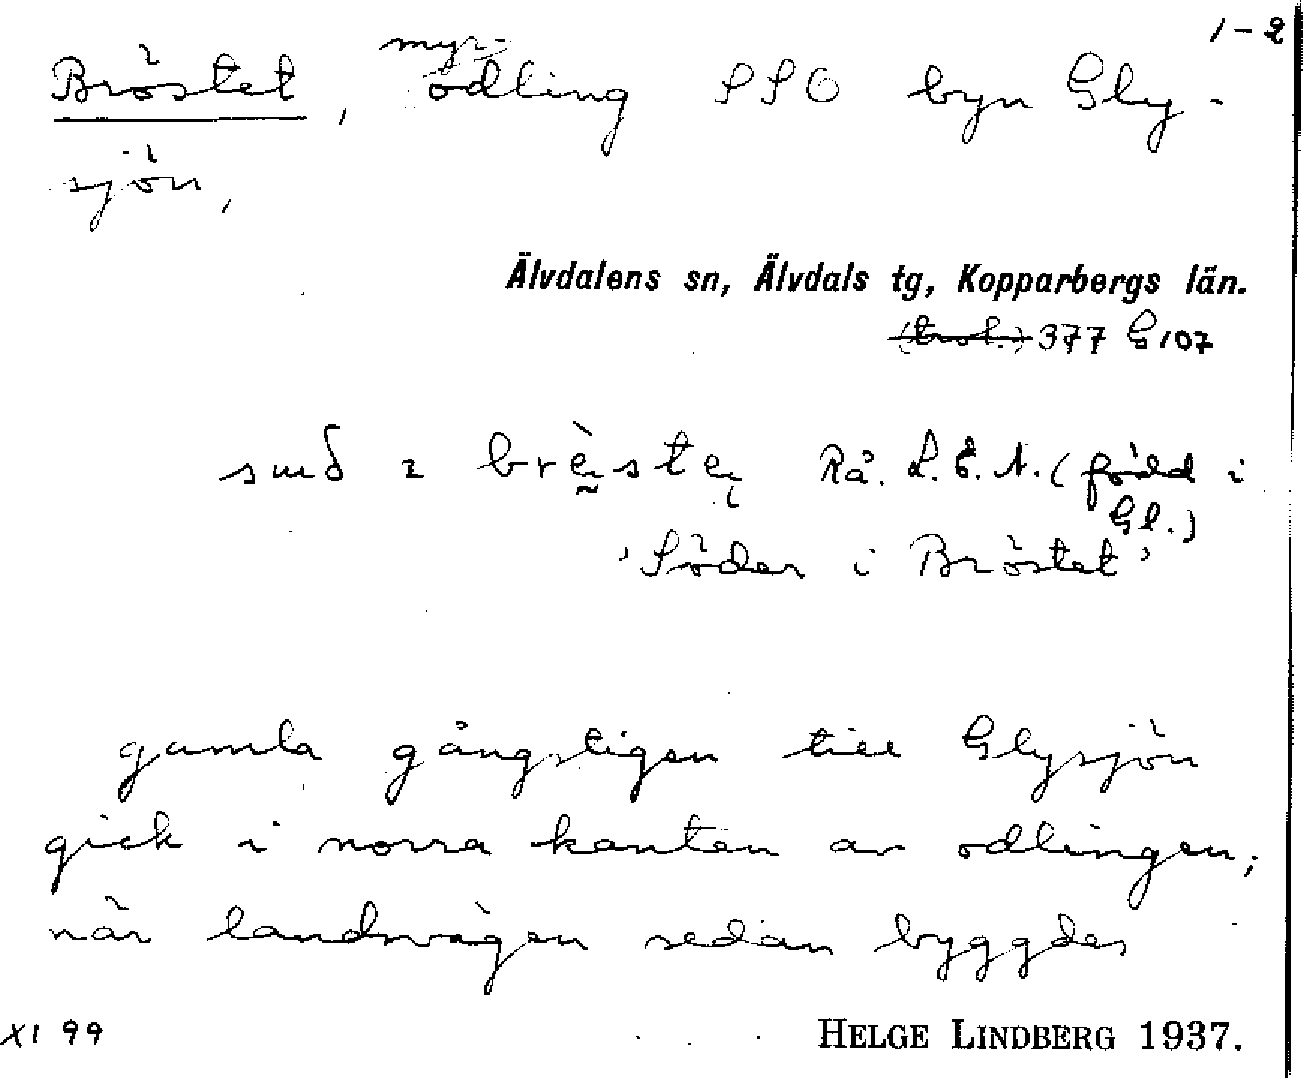 1-2
Bröstet, myr-odling SSO byn Gly-
sjön,
Älvdalens sn, Älvdals tg, Kopparbergs län.
(trol.) 377 G 107
Rå. L.E.N. (född i
Gl.)
'Söder i Bröstet'
gamla gångstigen till Glysjön
gick i norra kanten av odlingen;
när landsvägen sedan byggdes
XI 99
HELGE LINDBERG 1937.